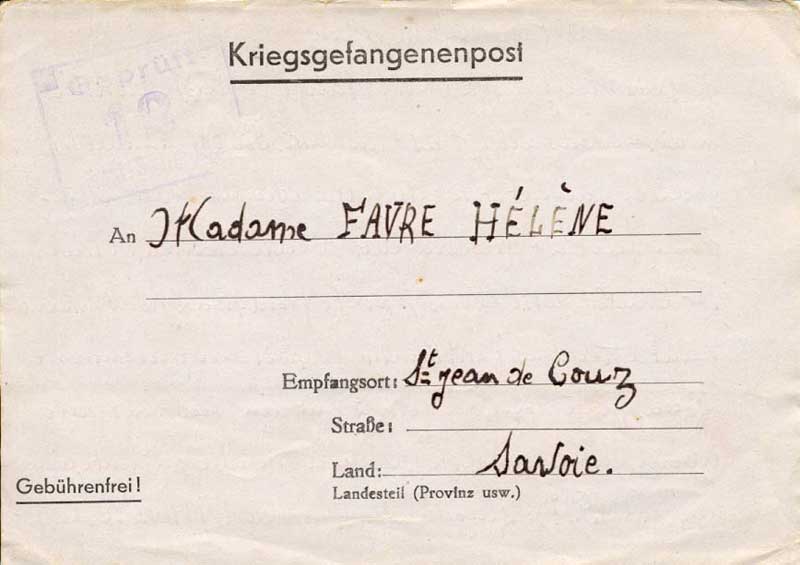 Kriegsgefangenenpost
Geprüft
An Madame FAVRE HÉLÈNE
Empfangsort: St Jean de Couz
Straße:
Land: Savoie.
Landesteil (Provinz usw.)
Gebührenfrei!